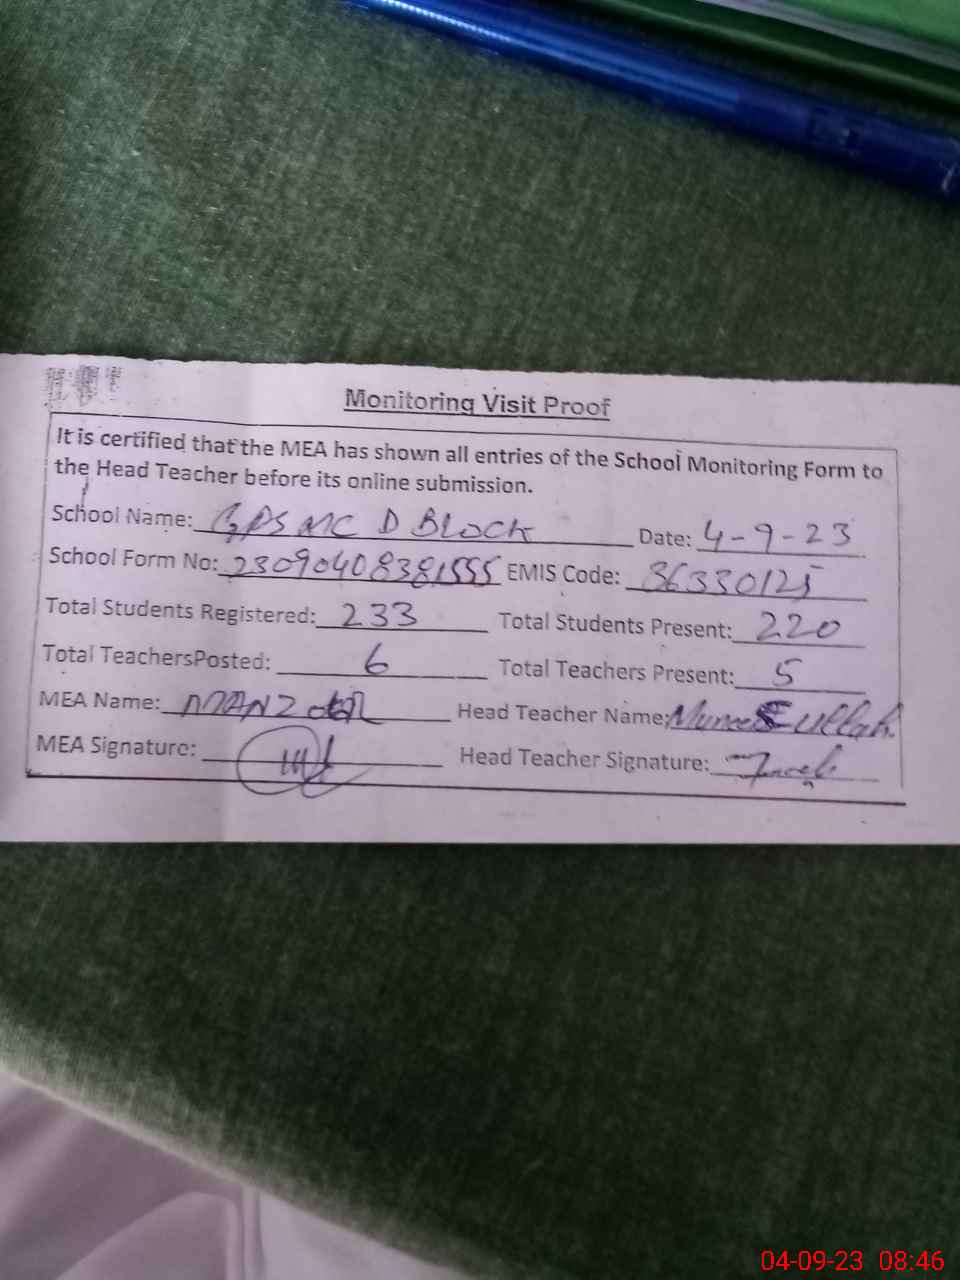 Monitoring Visit Proof
It is certified that the MEA has shown all entries of the School Monitoring Form to
the Head Teacher before its online submission.
School Name: GPS MC D BLOCK Date: 4-9-23
School Form No: 23090408381555 EMIS Code: 36330125
Total Students Registered: 233 Total Students Present: 220
Total TeachersPosted: 6 Total Teachers Present: 5
MEA Name: MANZOOR Head Teacher Name: Ullah.
MEA Signature: Head Teacher Signature:
04-09-23 08:46